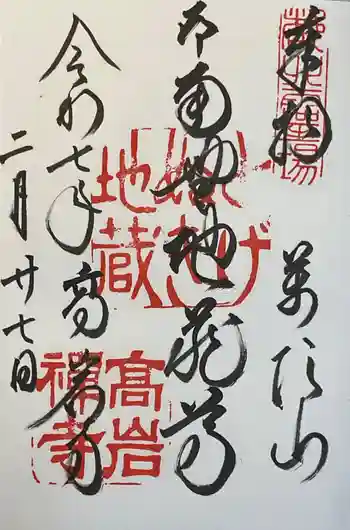 奉拝
萬頂山
南無地蔵尊
高岩寺
令和七年
二月廿七日
とげぬき
地蔵
高岩
禅寺